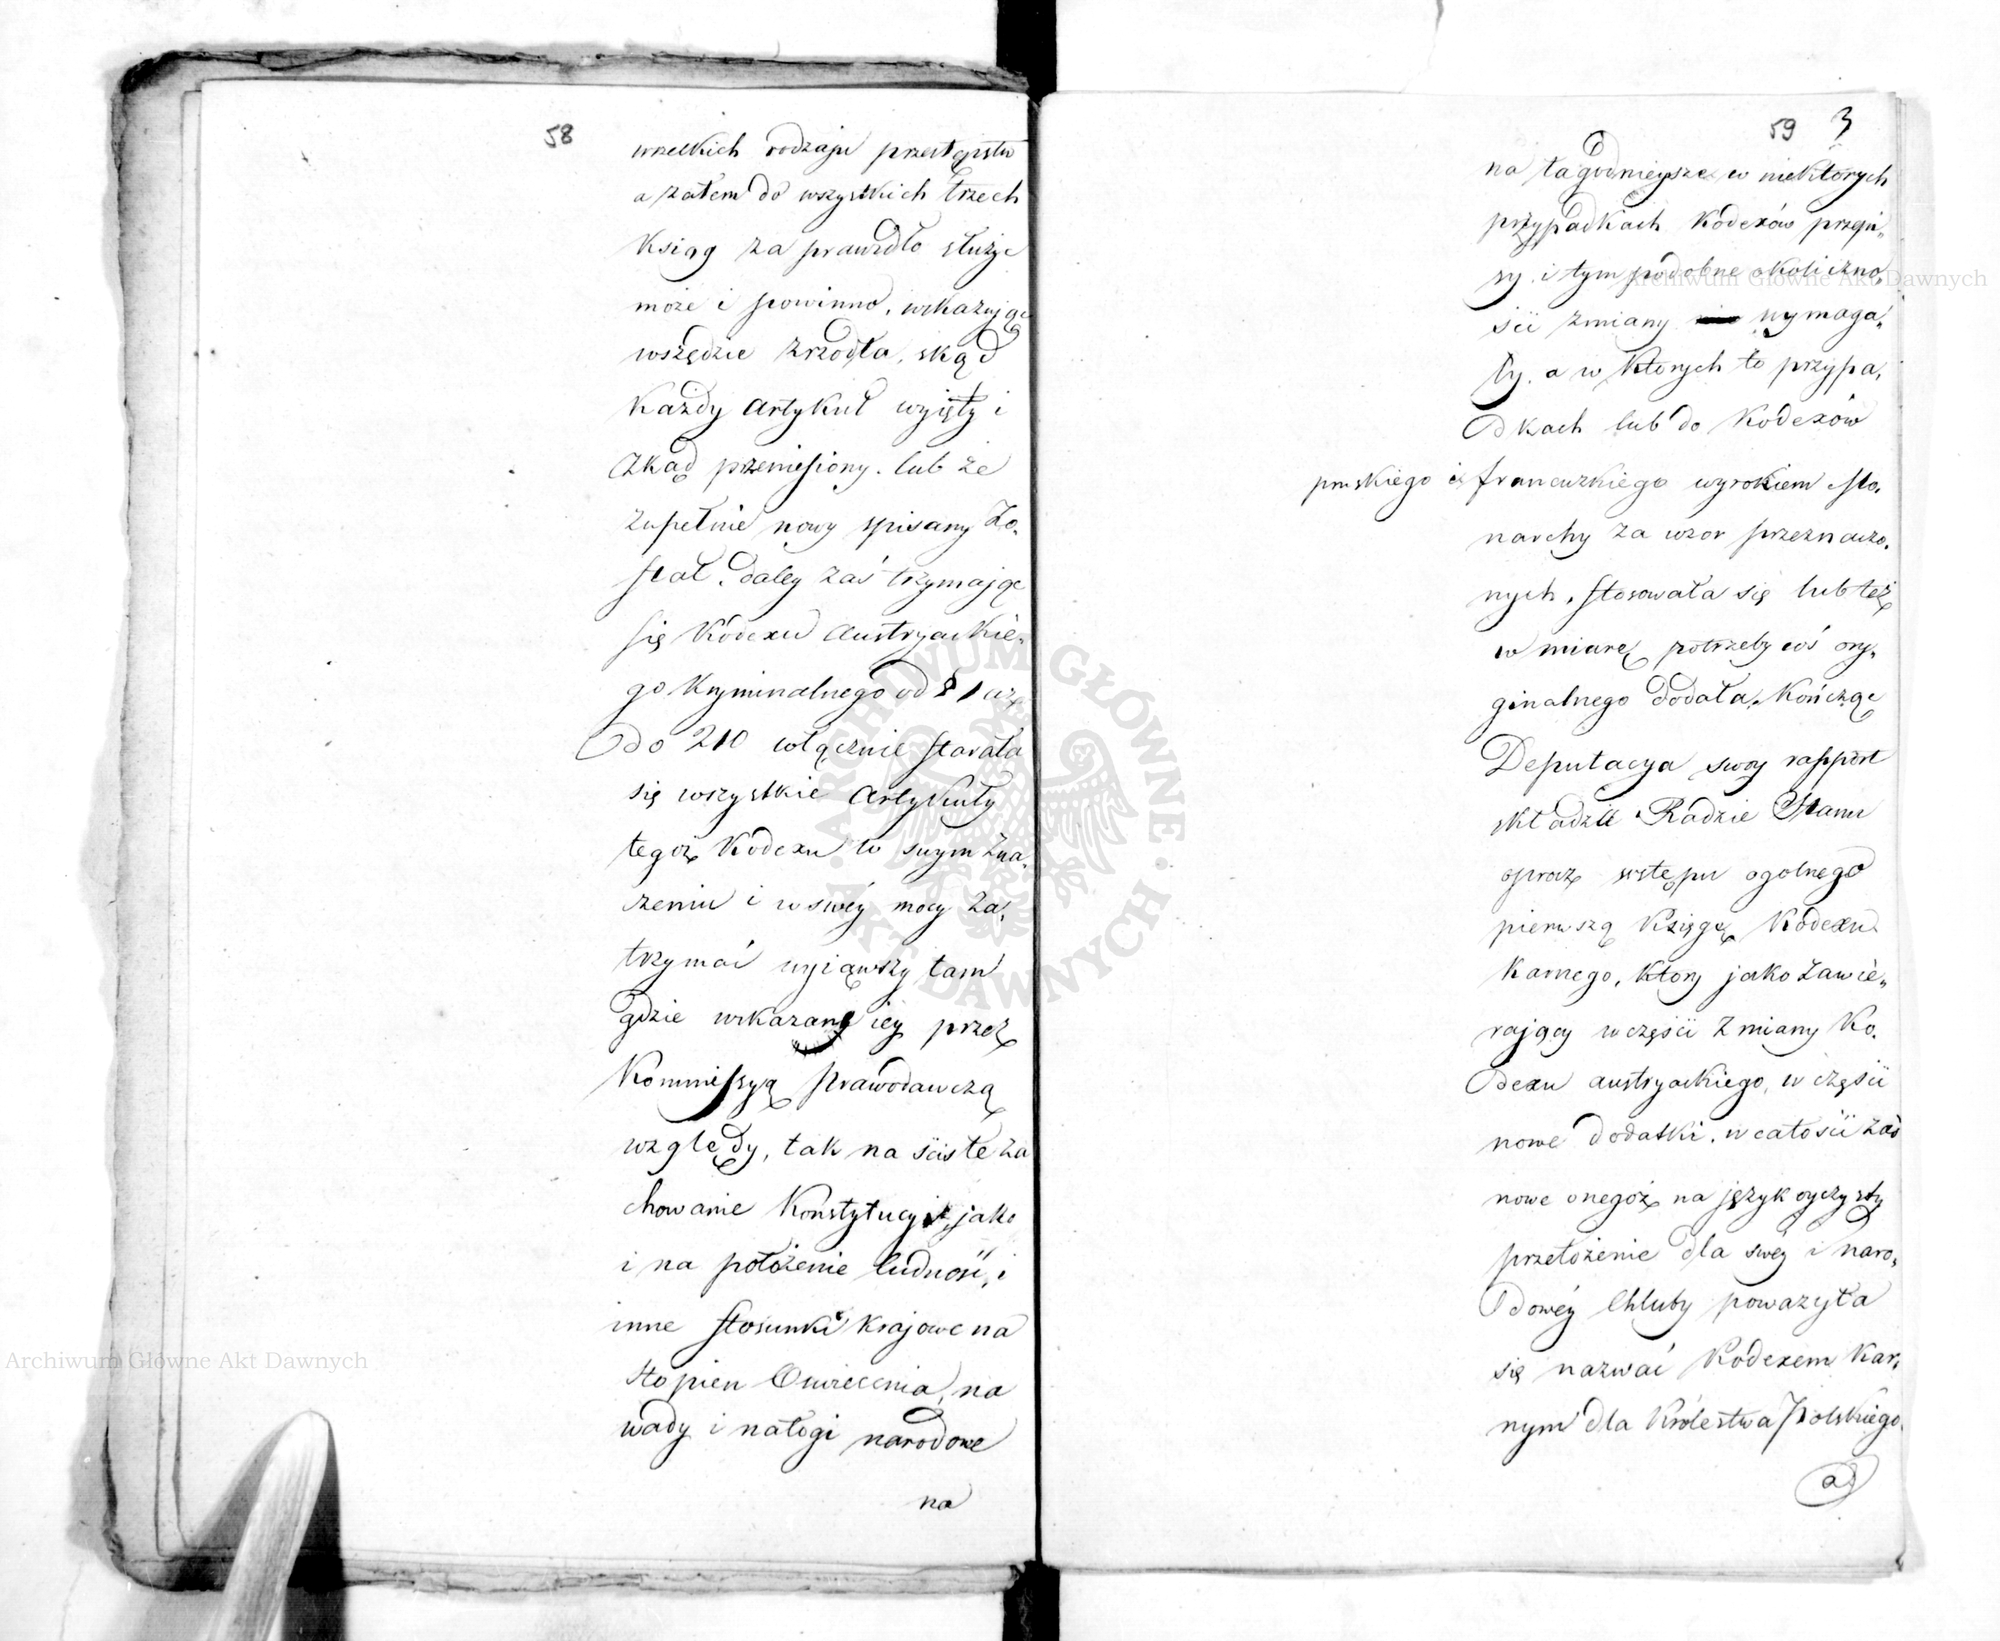 58
wszelkich rodzaju przestępstw
a zatem do wszystkich trzech
Ksiąg za prawidło służyć
może i powinno, wskazując
wszędzie zrzodła, skąd
Każdy Artykuł wyięty i
zkąd przeniesiony, lub że
zupełnie nowy spisany zo,
stał, daley zaś trzymając
się Kodexu Austryackie,,
go Kryminalnego od § 1 aż
do 210 włącznie starała
się wszystkie Artykuły
tegoż Kodexu w swym zna,
czeniu i w swéy mocy za,
trzymać wyiąwszy tam
gdzie wskazane iey przez
Kommissyą Prawodawczą
względy, tak na ścisłe za
chowanie Konstytucyi, jako
i na położenie ludności, i
inne stosunki krajowe na
stopień Oświecenia, na
wady i nałogi narodowe
na
59 3
na łagodnieysze w niektórych
przypadkach Kodexów przepi,,
sy i tym podobne okoliczno,
ści zmiany wymaga,,
ły, a w których to przypa,
dkach lub do Kodexów
pruskiego i francuzkiego wyrokiem Mo,
narchy za wzor przeznaczo,
nych, stosowała się lub też
w miarę potrzeby coś ory,,
ginalnego dodała, Kończąc
Deputacya swoy rapport
składzie Radzie Stanu
oprócz wstępu ogolnego
pierwszą Księgę Kodexu
Karnego, który jako zawie,,
rający w części zmiany Ko,
dexu austryackiego, w części
nowe dodatki, w całości zaś
nowe onegoż na język oyczysty
przełożenie dla swéy i naro,
dowéy Chluby poważyła
się nazwać Kodexem Kar,
nym dla Królestwa Polskiego.
a)
Archiwum Główne Akt Dawnych
Archiwum Główne Akt Dawnych
ARCHIWUM GŁÓWNE AKT DAWNYCH